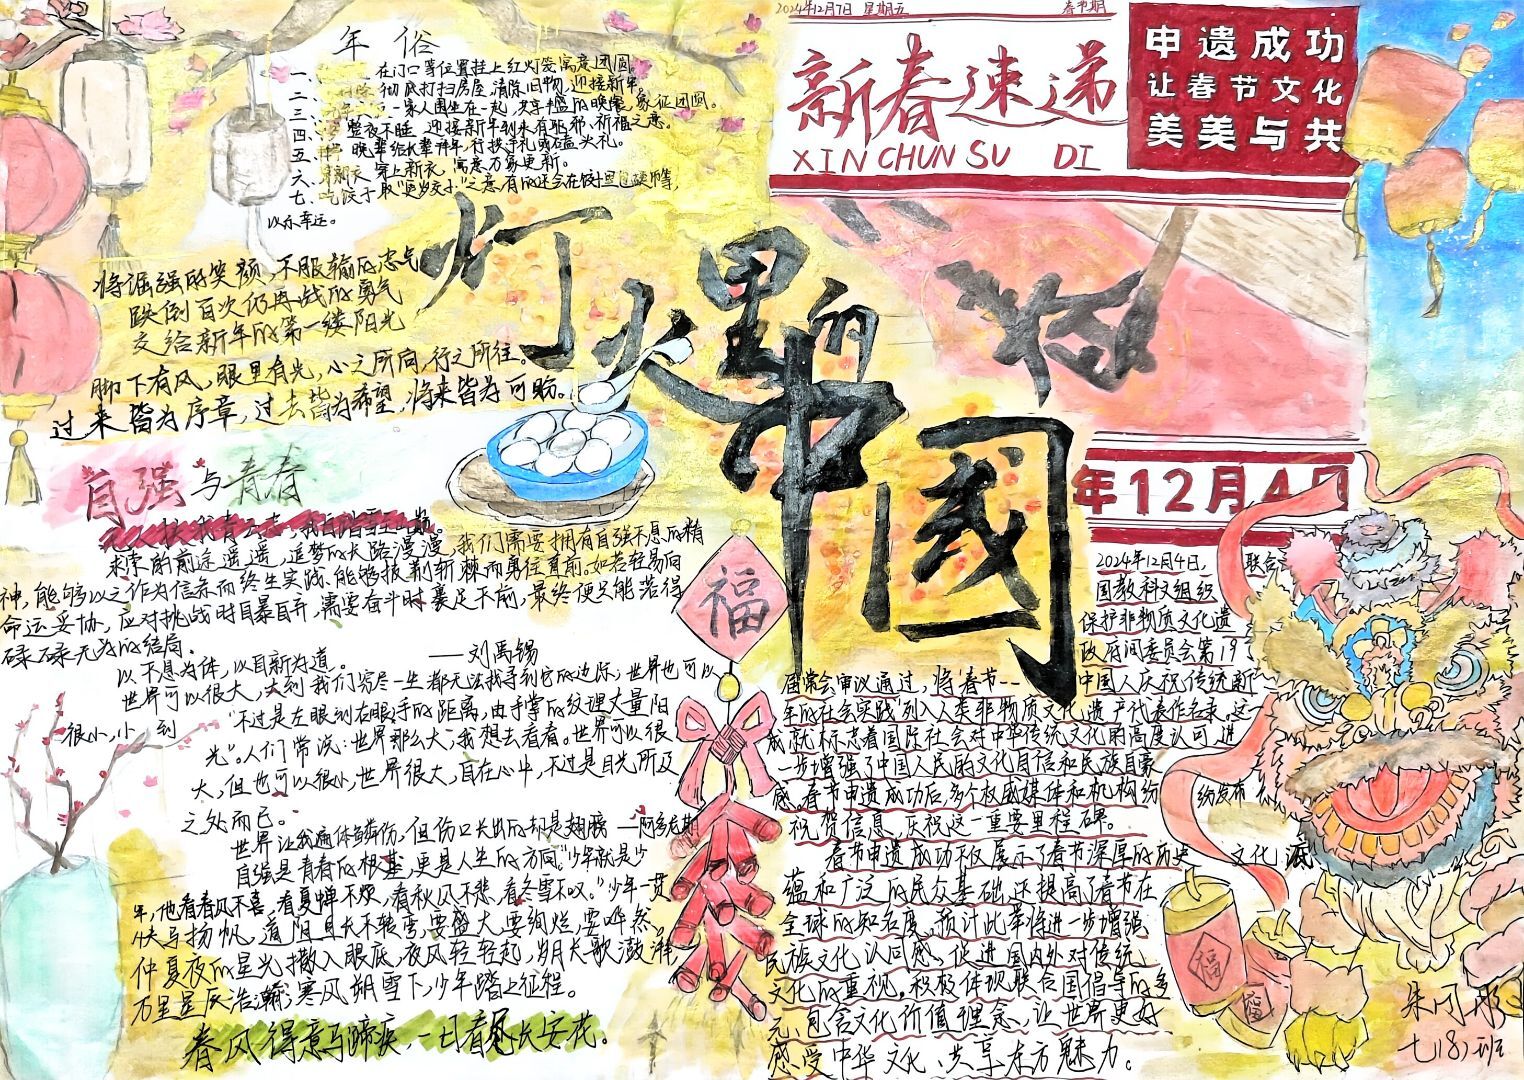 年俗
一、在门口等位置挂上红灯笼寓意团圆。
二、彻底打扫房屋,清除旧物,迎接新年。
三、一家人围坐在一起,共享丰盛的晚餐,象征团圆。
四、整夜不睡,迎接新年到来有驱邪、祈福之意。
五、晚辈给长辈拜年,行拱手礼或磕头礼。
六、穿新衣,穿上新衣,寓意万象更新。
七、吃饺子取"更岁交子"之意,有的还会在饺里包硬币等,
以示幸运。
将倔强的笑颜,不服输的志气
跌倒百次仍再战的勇气
交给新年的第一缕阳光
脚下有风,眼里有光,心之所向,行之所往。
过来皆为序章,过去皆为希望,将来皆为可盼。
自强与青春
求索的前途遥遥,追梦的长路漫漫,我们需要拥有自强不息的精
神,能够以之作为信条而终生实践,能够披荆斩棘而勇往直前。如若轻易向
命运妥协,应对挑战时自暴自弃,需要奋斗时裹足不前,最终便只能落得
碌碌无为的结局。
以不息为体,以日新为道。 ——刘禹锡
世界可以很大,大到我们穷尽一生都无法找寻到它的边际;世界也可以
很小,小到"不过是左眼到右眼的距离,由手掌的纹理丈量阳
光"。人们常说:世界那么大,我想去看看。世界可以很
大,但也可以很小,世界很大,自在心中,不过是目光所及
之处而已。
世界让我遍体鳞伤,但伤口长出的却是翅膀
自强是青春的根基,更是人生的方向。"少年就是少
年,他看春风不喜,看夏蝉不烦,看秋风不悲,看冬雪不叹。"少年一贯
快马扬帆,道阻且长不转弯,要盛大,要绚烂,要哗然。
仲夏夜的星光撒入眼底,夜风轻轻起,岁月长歌
万里星辰浩瀚;寒风朔雪下,少年踏上征程。
春风得意马蹄疾,一日看尽长安花。
灯火里的中國
福
2024年12月7日 星期五
春节期
新春速递
XIN CHUN SU DI
申遗成功
让春节文化
美美与共
年12月4日
2024年12月4日,联合
国教科文组织
保护非物质文化遗
政府间委员会第19
届常会审议通过,将"春节——中国人庆祝传统新
年的社会实践"列入人类非物质文化遗产代表作名录。这一
成就标志着国际社会对中华传统文化的高度认可,进
一步增强了中国人民的文化自信和民族自豪
感。春节申遗成功后,多个权威媒体和机构纷纷发布
祝贺信息,庆祝这一重要里程碑。
春节申遗成功不仅展示了春节深厚的历史文化底
蕴和广泛的民众基础,还提高了春节在
全球的知名度。预计此举将进一步增强
民族文化认同感,促进国内外对传统
文化的重视。积极体现联合国倡导的多
元、包含文化价值理念,让世界更好
感受中华文化、共享东方魅力。
福
福
七(8)班